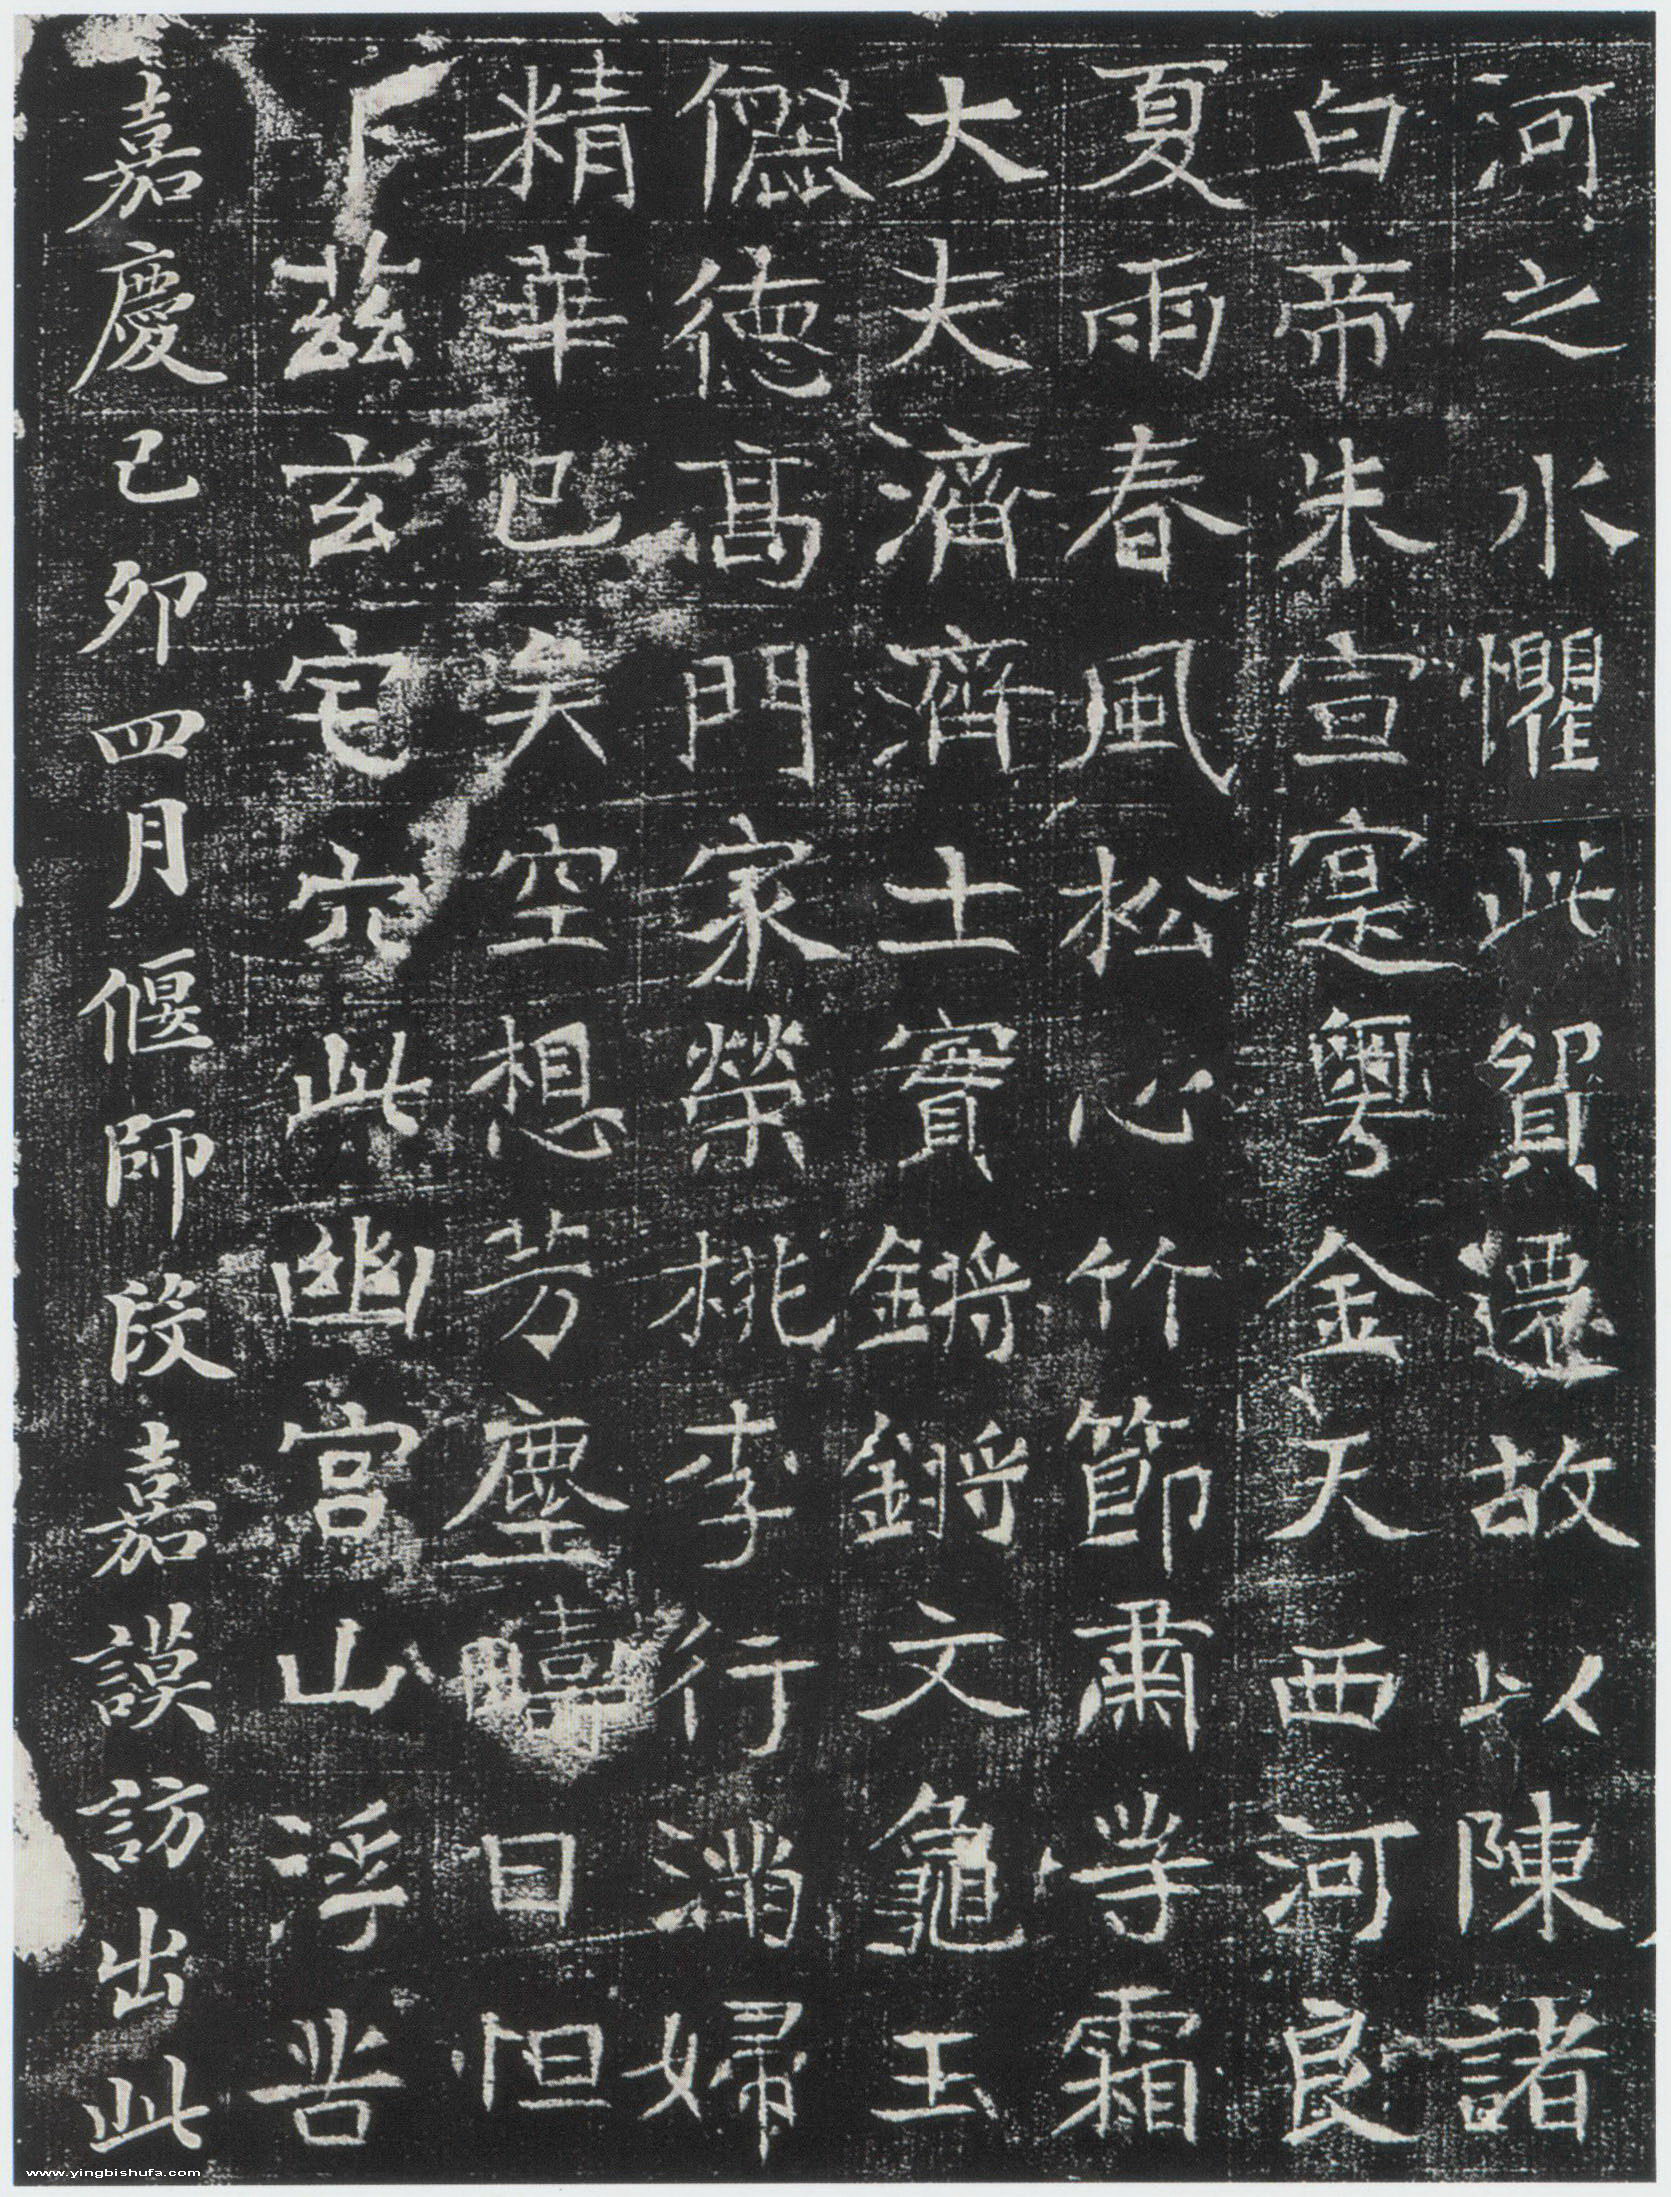 河之水懼此貿遷故以陳諸
白帝朱宣寔粵金天西河良
夏雨春風松心竹節肅等霜
大夫濟濟士實鏘鏘文龜玉
儷德高門家榮桃李行滿婦
精華已矣空想芳塵日怛
卜茲玄宅穴此幽宮山浮苦
嘉慶己卯四月偃師段嘉謨訪出此
www.yingbishufa.com